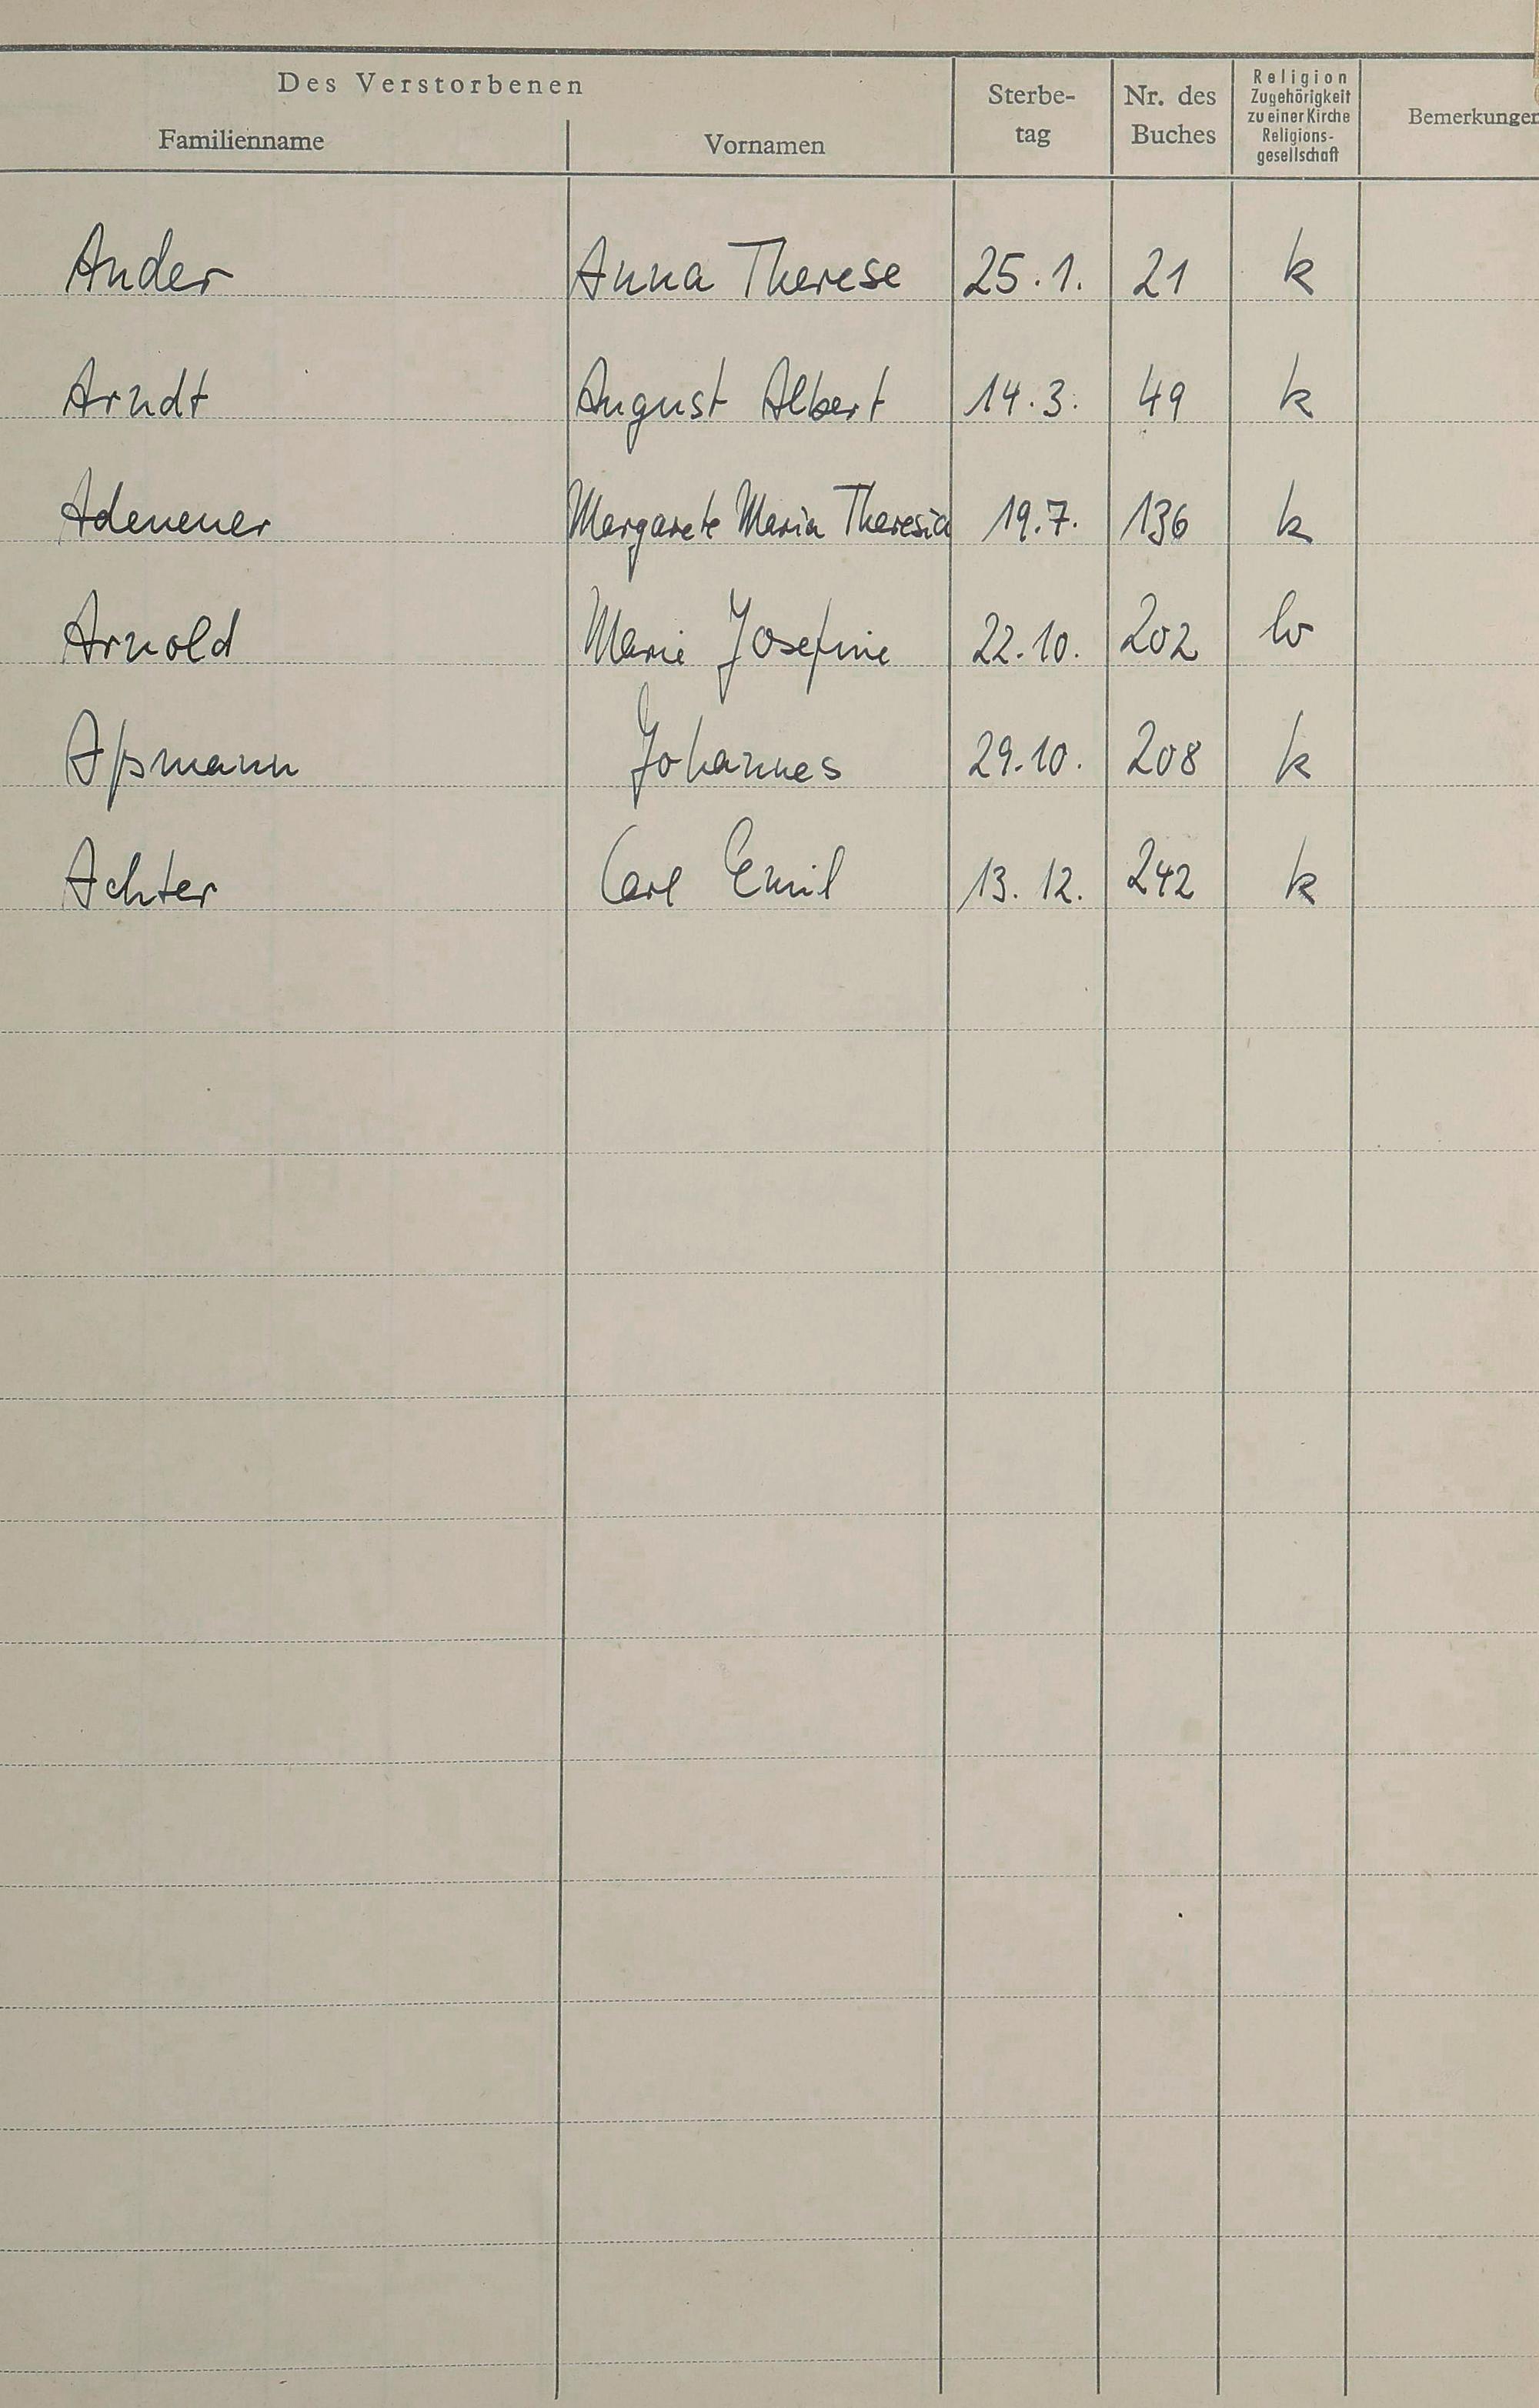 Des Verstorbenen
Familienname Vornamen Sterbe-tag Nr. des Buches Religion Zugehörigkeit zu einer Kirche Religions-gesellschaft Bemerkungen
Ander Anna Therese 25.1. 21 k
Arndt August Albert 14.3. 49 k
Adeneuer Margarete Maria Theresia 19.7. 136 k
Arnold Marie Josefine 22.10. 202
Aßmann Johannes 29.10. 208 k
Achter Carl Emil 13.12. 242 k